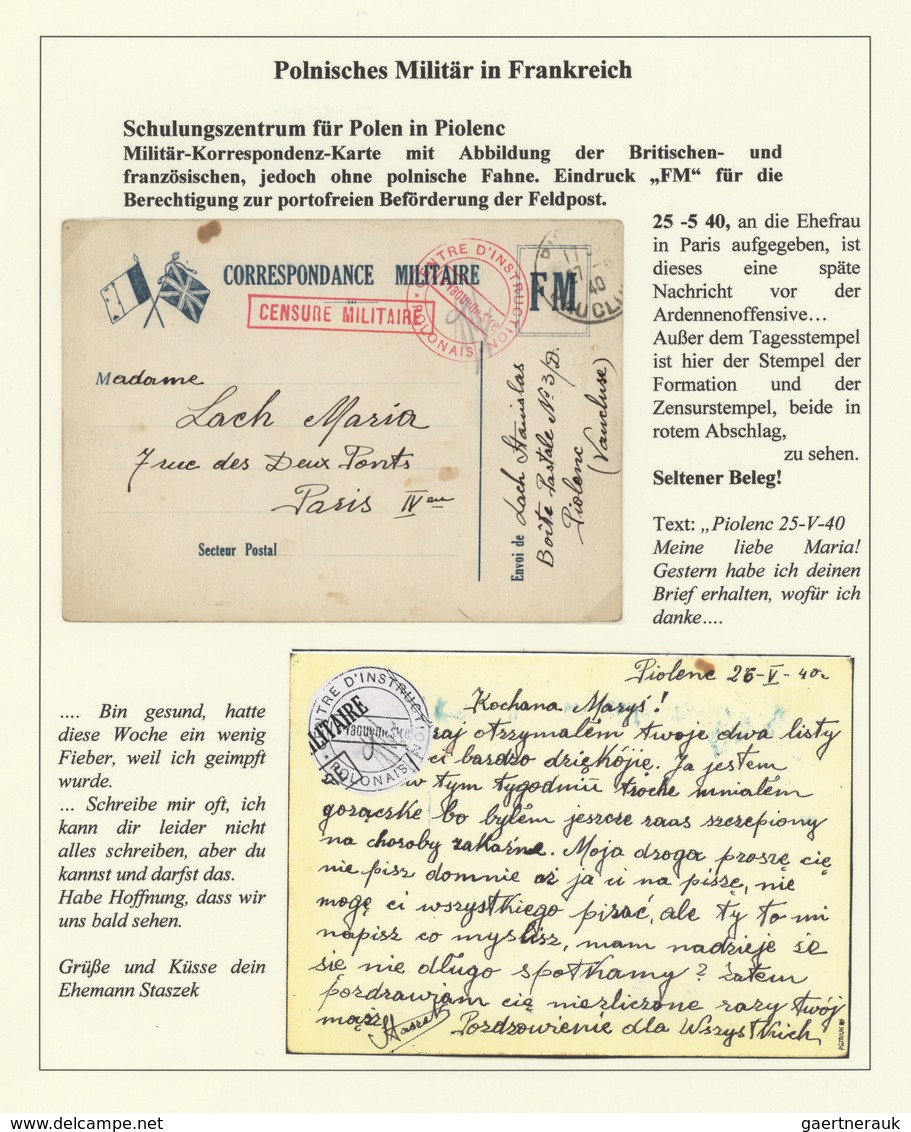 Polnisches Militär in Frankreich
Schulungszentrum für Polen in Piolenc
Militär-Korrespondenz-Karte mit Abbildung der Britischen- und
französischen, jedoch ohne polnische Fahne. Eindruck „FM“ für die
Berechtigung zur portofreien Beförderung der Feldpost.
CORRESPONDANCE MILITAIRE
CENSURE MILITAIRE
CENTRE D'INSTRUCTION
POLONAIS
Vaguemestre
FM
40
Madame
Lach Maria
7 rue des Deux Ponts
Paris IVem
Secteur Postal
Envoi de Lach Stanislas
Boîte Postale No 3/D.
Piolenc
(Vaucluse)
25 -5 40, an die Ehefrau
in Paris aufgegeben, ist
dieses eine späte
Nachricht vor der
Ardennenoffensive…
Außer dem Tagesstempel
ist hier der Stempel der
Formation und der
Zensurstempel, beide in
rotem Abschlag,
zu sehen.
Seltener Beleg!
Text: „Piolenc 25-V-40
Meine liebe Maria!
Gestern habe ich deinen
Brief erhalten, wofür ich
danke….
…. Bin gesund, hatte
diese Woche ein wenig
Fieber, weil ich geimpft
wurde.
... Schreibe mir oft, ich
kann dir leider nicht
alles schreiben, aber du
kannst und darfst das.
Habe Hoffnung, dass wir
uns bald sehen.
Grüße und Küsse dein
Ehemann Staszek
TRE D'INSTRUCTION
ILITAIRE
Vaguemestre
POLONAIS
Piolenc 26-V-40.
Kochana Maryś!
raj otrzymałem twoje dwa listy
ci bardzo dziękójię. Ja jestem
w tym tygodniu troche mniałem
gorączke bo byłem jeszcze raas szczepiony
na choroby zakaźne. Moja droga proszę cię
nie pisz domnie aż ja ci na piszę, nie
mogę ci wszystkiego pisać, ale ty to mi
napisz co myślisz, mam nadzieje że
się nie długo spotkamy? Zatem
pozdrawiam cię niezliczone razy twój
mąż Stasze
Pozdrowienie dla Wszystkich